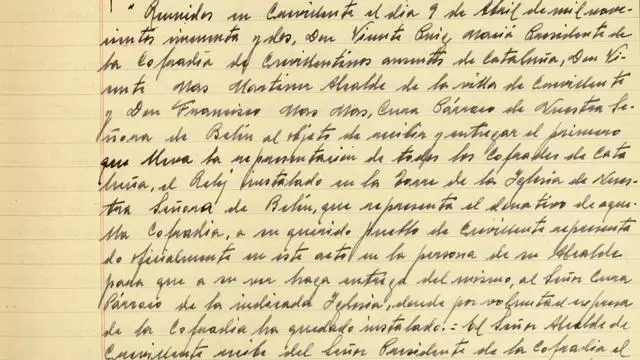 "Reunidos en Crevillente el dia 9 de Abril de mil nove-
cientos cincuenta y dos, Don Vicente Puig, Presidente de
la Cofradia de Crevillentinos ausentes de Cataluña, Don Vi-
cente Mas Martinez Alcalde de la villa de Crevillente
y Don Francisco Mas Mas, Cura Párroco de Nuestra Se-
ñora de Belén al objeto de recibir y entregar el primero
que lleva la representación de todos los Cofrades de Cata
luña, el Reloj instalado en la Torre de la Iglesia de Nues-
tra Señora de Belén, que representa el donativo de aque-
lla Cofradia, a su querido pueblo de Crevillente representa
do oficialmente en este acto en la persona de su Alcalde
para que a su vez haga entrega del mismo, al Señor Cura
Párroco de la indicada Iglesia, donde por voluntad expresa
de la Cofradia ha quedado instalado.= El Señor Alcalde de
Crevillente recibe del Señor Presidente de la Cofradia el